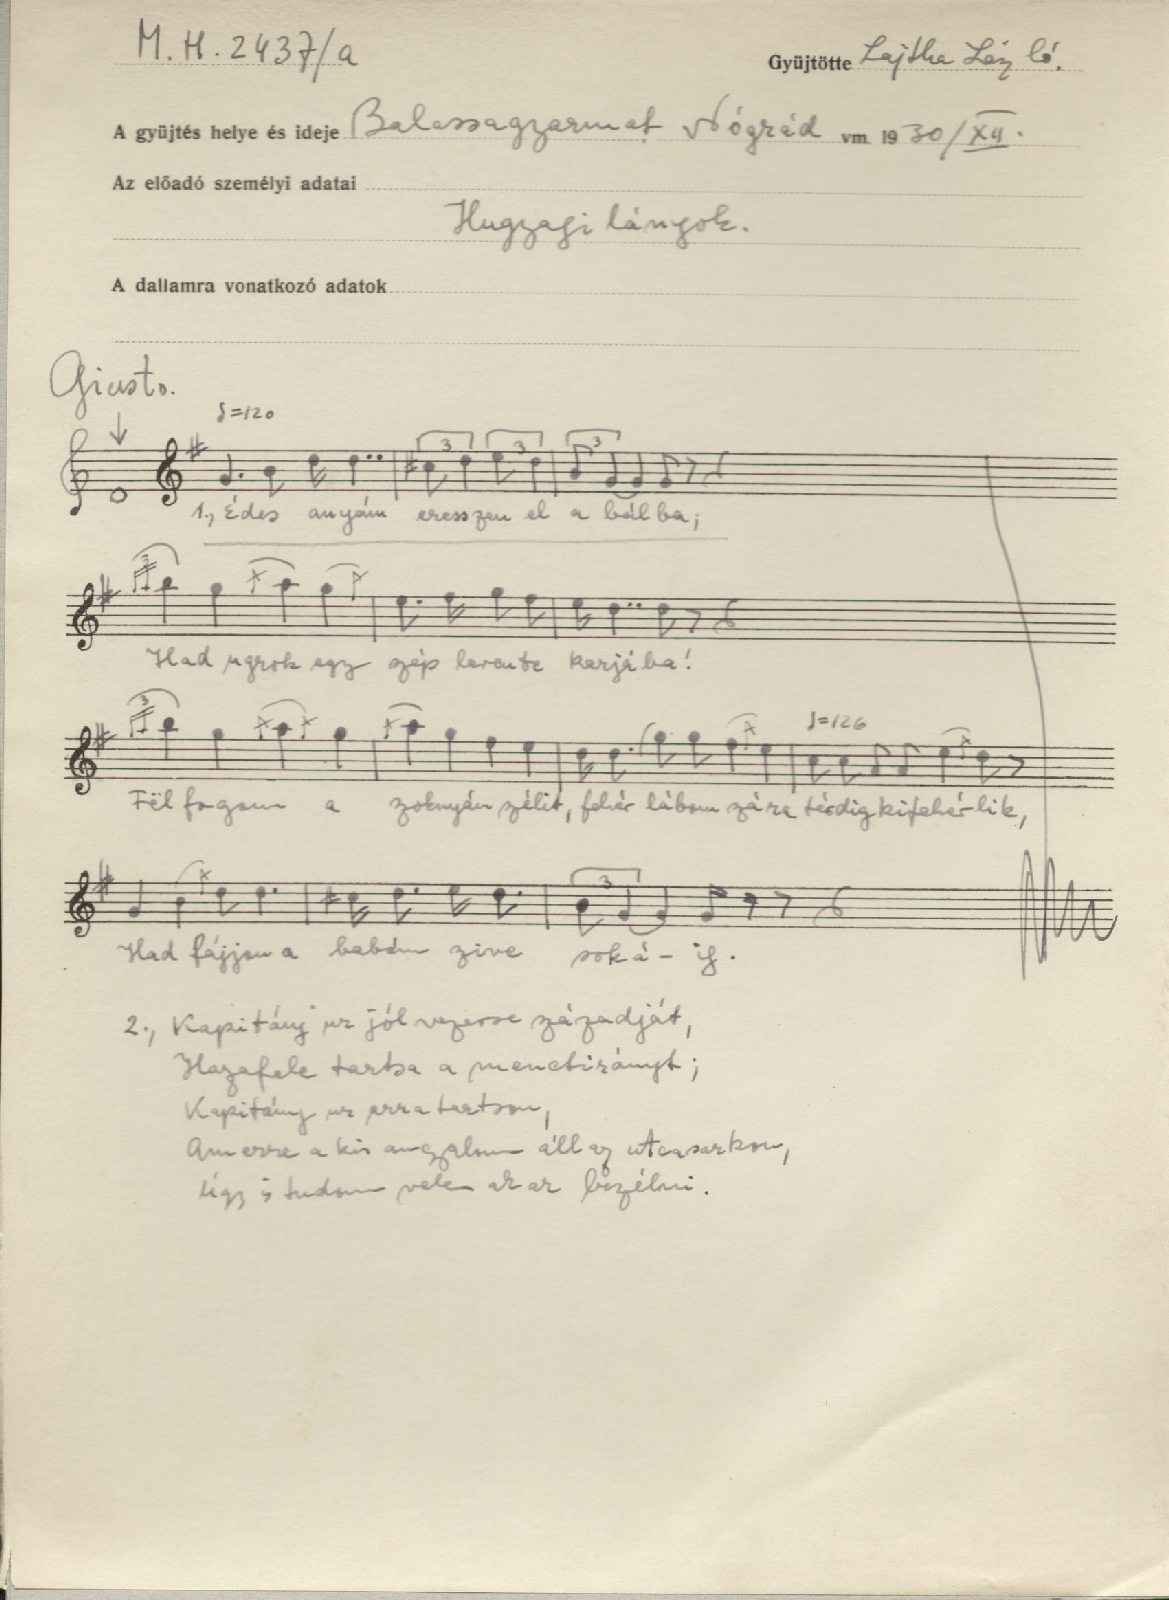 M. H. 2437/a
Gyüjtötte Lajtha László.
A gyüjtés helye és ideje Balassagyarmat Nógrád vm. 1930/XII.
Az előadó személyi adatai
Hugyagi lányok.
A dallamra vonatkozó adatok
Giusto.
♩=120
3 3 3
1., Édes anyám eresszen el a bálba;
3
Had ugrok egy szép levente karjába!
3 ♩=126
Fël fogom a zoknyám szélit, fehér lábom szára térdig kifehérlik,
3
Had fájjon a babám szive soká - ig.
2., Kapitány ur jól vezesse századját,
Hazafele tartsa a menetirányt;
Kapitány ur arra tartson,
Amerre a kis angyalom áll az utcasarkon,
Úgy is tudom vele akar beszélni.